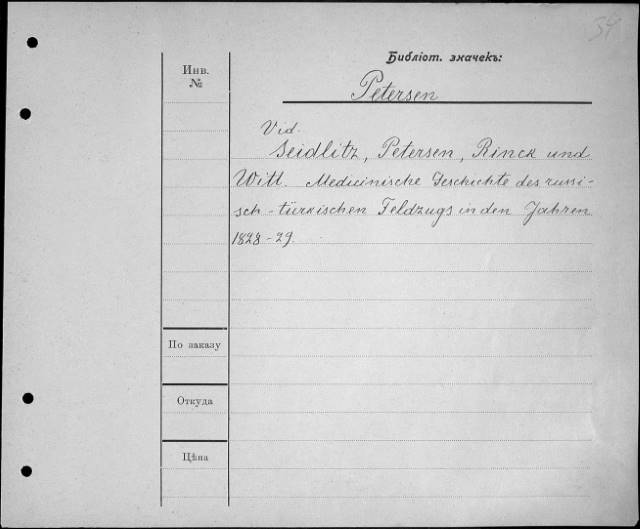 34
Библіот. значекъ:
Инв.
№
Petersen
Vid.
Seidlitz, Petersen, Rinck und
Witt. Medicinische Geschichte des russi-
sch-türkischen Feldzugs in den Jahren
1828-29.
По заказу
Откуда
Цѣна